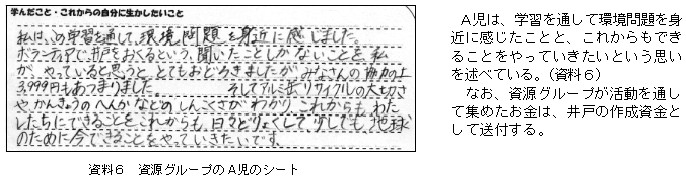 学んだこと・これからの自分に生かしたいこと
私は、この学習を通して、環境問題を身近に感じました。
ボランティアで、井戸をおくるという、聞いたことしかないことを、私
が、やっていると思うと、とてもおどろきましたが、みなさんの協力の上
3,999円もあつまりました。 そしてアルミ缶リサイクルの大切さ
やかんきょうのへんかなどの、しんこくさがわかり、これからも、わた
したちにできることを、これからも、日々どりょくして、少しでも、地球
のために今できることをやっていきたいです。
資料6 資源グループのA児のシート
A児は、学習を通して環境問題を身
近に感じたことと、これからもでき
ることをやっていきたいという思い
を述べている。(資料6)
なお、資源グループが活動を通し
て集めたお金は、井戸の作成資金と
して送付する。